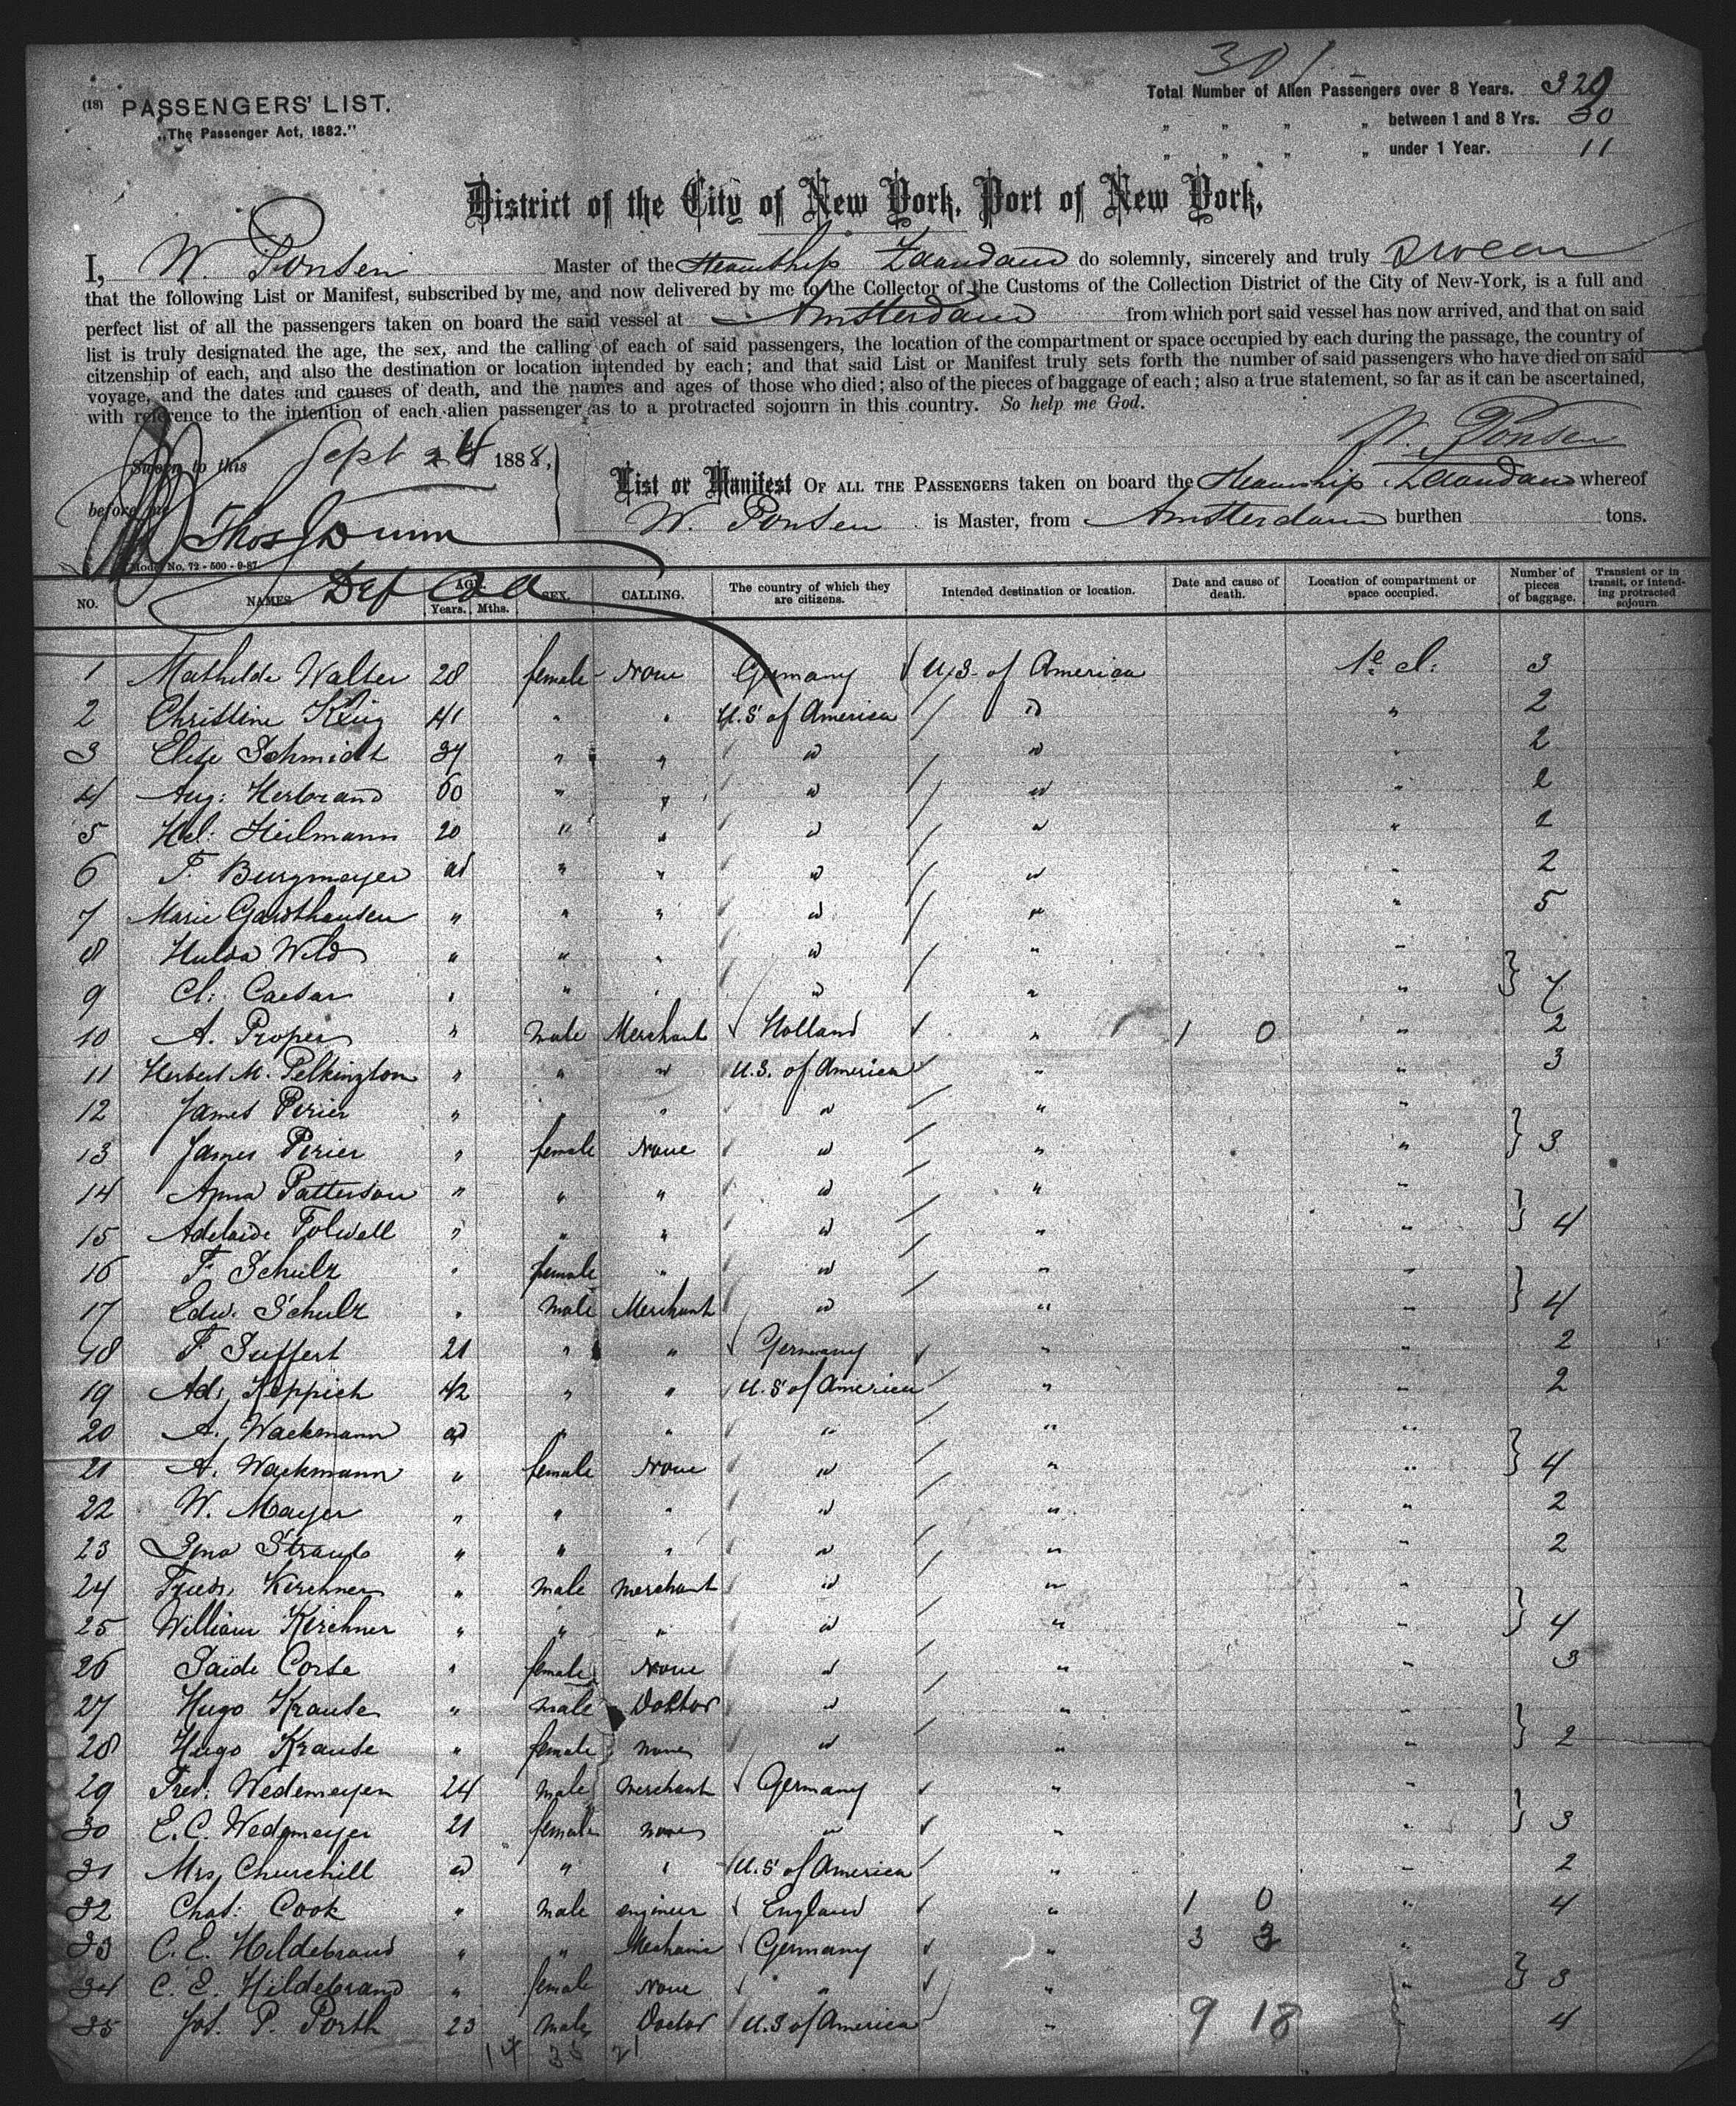 301
(18) PASSENGERS' LIST.
„The Passenger Act, 1882."
Total Number of Alien Passengers over 8 Years. 329
„ „ „ „ between 1 and 8 Yrs. 30
„ „ „ „ under 1 Year. 11
District of the City of New York, Port of New York.
I, W. Ponsen Master of the Steamship Zaandam do solemnly, sincerely and truly swear
that the following List or Manifest, subscribed by me, and now delivered by me to the Collector of the Customs of the Collection District of the City of New-York, is a full and
perfect list of all the passengers taken on board the said vessel at Amsterdam from which port said vessel has now arrived, and that on said
list is truly designated the age, the sex, and the calling of each of said passengers, the location of the compartment or space occupied by each during the passage, the country of
citzenship of each, and also the destination or location intended by each; and that said List or Manifest truly sets forth the number of said passengers who have died on said
voyage, and the dates and causes of death, and the names and ages of those who died; also of the pieces of baggage of each; also a true statement, so far as it can be ascertained,
with reference to the intention of each alien passenger as to a protracted sojourn in this country. So help me God.
W. Ponsen
Sworn to this Sept 24 1888,
before me Thos Dunn
Dep Coll
List or Manifest OF ALL THE PASSENGERS taken on board the Steamship Zaandam whereof
W. Ponsen is Master, from Amsterdam burthen tons.
Model No. 72 - 500 - 9-87.
NO. NAMES AGE Years. Mths. SEX. CALLING. The country of which they are citizens. Intended destination or location. Date and cause of death. Location of compartment or space occupied. Number of pieces of baggage. Transient or in transit, or intending protracted sojourn
1 Mathilde Walter 28 female None Germany U.S. of America 1e cl: 3
2 Christine King 41 " " U.S of America id " 2
3 Elise Schmidt 37 " " id id " 2
4 Aug: Herbrand 60 " " id id " 2
5 Hel: Heilmann 20 " " id id " 2
6 F. Burgmeyer ad " " id id " 2
7 Marie Gardthausen " " " id " " 5
8 Hulda Wild " " " id " "
9 Cl: Caesar " " " id " " } 7
10 A. Proper " male Merchant Holland " 1 0 " 2
11 Herbert M. Pelkington " " " U.S. of America " " 3
12 James Perier " " " id " "
13 James Perier " female None id " " } 3
14 Anna Patterson " " " id " "
15 Adelaide Folwell " " " id " " } 4
16 F Schulz " female " id " "
17 Edw. Schulz " male Merchant id " " } 4
18 F Suffert 21 " " Germany " " 2
19 Ad: Keppich 42 " " U.S of America " " 2
20 A. Wackmann ad " " " " "
21 A. Wackmann " female None id " " } 4
22 W. Mayer " " " id " " 2
23 Lena Straub " " " id " " 2
24 Fried. Kirchner " male merchant id " "
25 William Kirchner " " " id " " } 4
26 Saide Corse " female None id " " 3
27 Hugo Krause " male Doktor id " "
28 Hugo Krause " female none id " " } 2
29 Fred: Wedemeyer 24 male merchant Germany " "
30 E. C. Wedemeyer 21 female none " " " } 3
31 Mrs Churchill ad " " U.S of America " " 2
32 Chas: Cook " male engineer England " 1 0 " 4
33 C. E. Hildebrand " " Mechanic Germany " 3 3 "
34 C. E. Hildebrand " female None " " " } 3
35 Jos. P. Porth 23 male Doctor U.S of America " 9 18 " 4
14 21